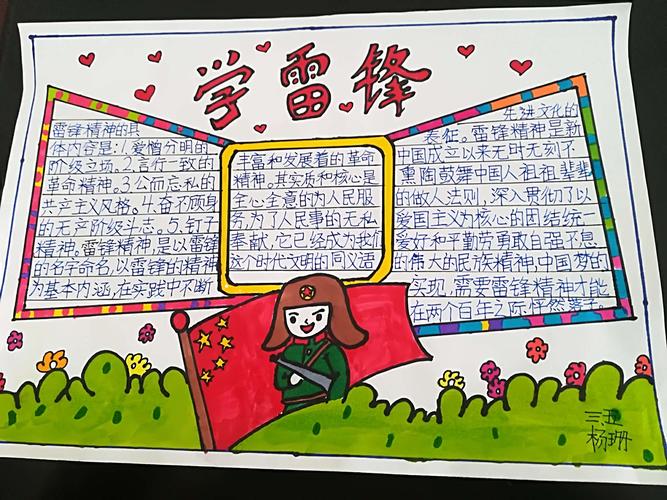 学雷锋
雷锋精神的具
体内容是:1.爱憎分明的
阶级立场。2.言行一致的
革命精神。3.公而忘私的
共产主义风格。4.奋不顾身
的无产阶级斗志。5.钉子
精神。雷锋精神,是以雷锋
的名字命名,以雷锋的精神
为基本内涵,在实践中不断
丰富和发展着的革命
精神。其实质和核心是
全心全意的为人民服
务,为了人民事的无私
奉献,它已经成为我们
这个时代文明的同义语
先进文化的
表征。雷锋精神是新
中国成立以来无时无刻不
熏陶鼓舞中国人祖祖辈辈
的做人法则,深入贯彻了以
爱国主义为核心的团结统一
爱好和平勤劳勇敢自强不息
的伟大的民族精神,中国梦的
实现,需要雷锋精神才能
在两个百年之际怦然落子
三.五
杨珊